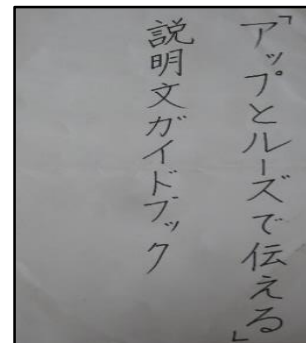 「アップとルーズで伝える」
説明文ガイドブック